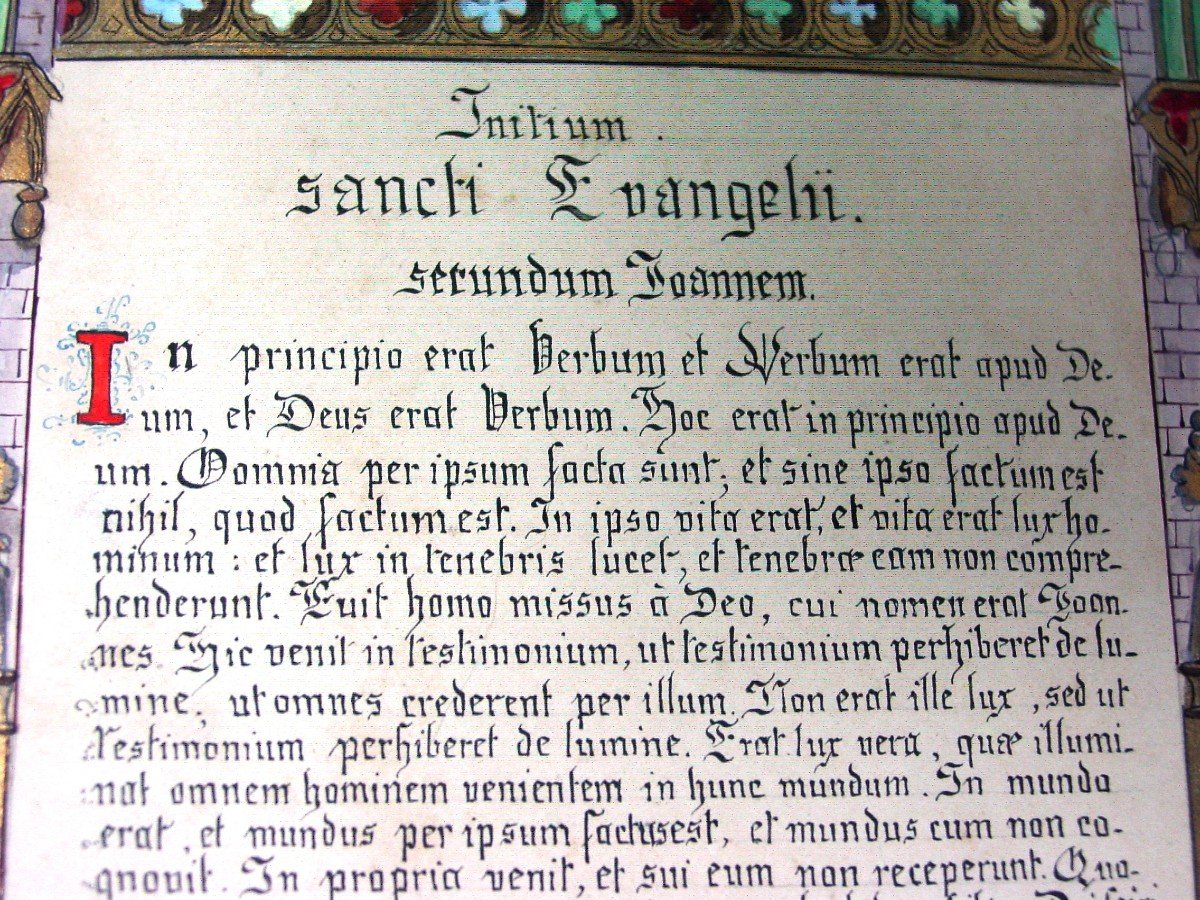 Initium.
sancti Evangelii.
secundum Joannem.
In principio erat Verbum et Verbum erat apud De-
um, et Deus erat Verbum. Hoc erat in principio apud De-
um. Oomnia per ipsum facta sunt; et sine ipso factum est
nihil, quod factum est. In ipso vita erat, et vita erat lux ho-
minum: et lux in tenebris lucet, et tenebræ eam non compre-
henderunt. Fuit homo missus à Deo, cui nomen erat Joan-
nes. Hic venit in testimonium, ut testimonium perhiberet de lu-
mine, ut omnes crederent per illum. Non erat ille lux, sed ut
testimonium perhiberet de lumine. Erat lux vera, quæ illumi-
nat omnem hominem venientem in hunc mundum. In mundo
erat, et mundus per ipsum factus est, et mundus eum non co-
gnovit. In propria venit, et sui eum non receperunt. Quo-